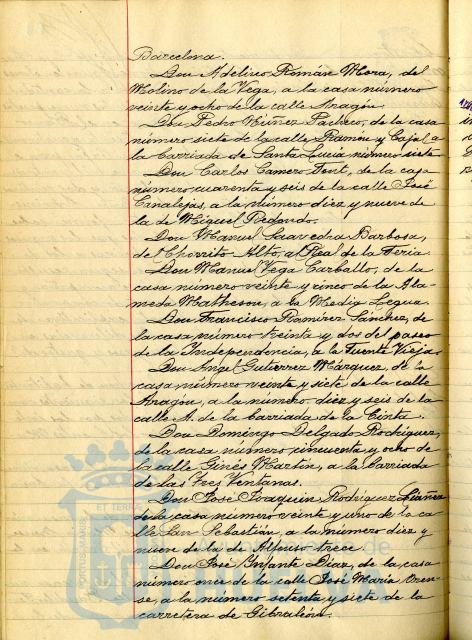 Barcelona.
Don Adelino Román Mora, del
Molino de la Vega, a la casa número
veinte y ocho de la calle Aragón.
Don Pedro Núñez Pacheco, de la casa
número siete de la calle Ramón y Cajal a
la barriada de Santa Lucía número siete.
Don Carlos Camero Font, de la casa
número cuarenta y seis de la calle José
Canalejas, a la número diez y nueve de
la de Miguel Redondo.
Don Manuel Saavedra Barbosa,
del Chorrito Alto, al Real de la Feria.
Don Manuel Vega Carballo, de la
casa número veinte y cinco de la Ala-
meda Matheson, a la Media Legua.
Don Francisco Ramírez Sánchez, de
la casa número treinta y dos del paseo
de la Independencia, a la Fuente Vieja.
Don Angel Gutierrez Márquez, de la
casa número veinte y siete de la calle
Aragón, a la número diez y seis de la
calle A. de la barriada de la Cinta.
Don Domingo Delgado Rodríguez,
de la casa número cincuenta y ocho de
la calle Ginés Martín, a la barriada
de las Tres Ventanas.
Don José Joaquín Rodríguez
de la casa número veinte y uno de la ca-
lle San Sebastián, a la número diez y
nueve de la de Alfonso trece.
Don José Infante Díaz, de la casa
número once de la calle José María Oren-
se, a la número setenta y siete de la
carretera de Gibraleón.